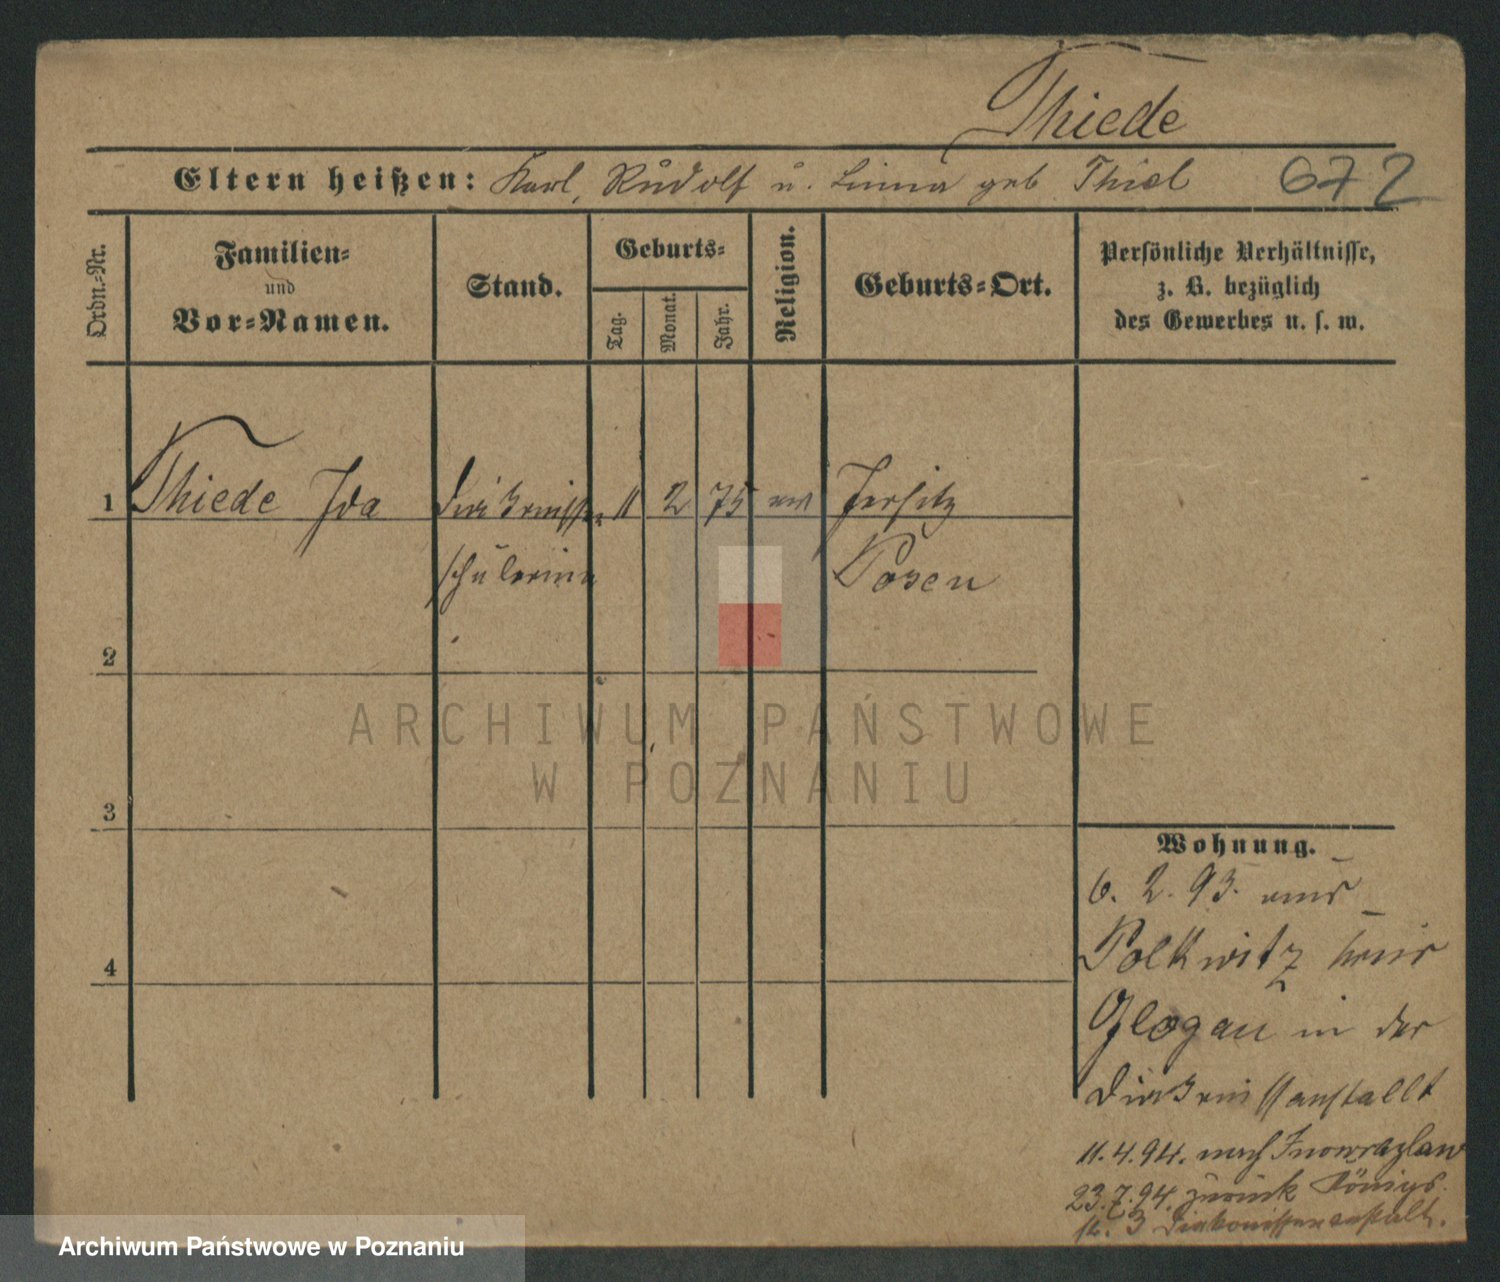 Thiede
Eltern heißen: Karl, Rudolf u. Linna geb Thiel 672
Ordn.-Nr.
Familien-
und
Vor-Namen.
Stand.
Geburts-
Tag.
Monat.
Jahr.
Religion.
Geburts-Ort.
Persönliche Verhältnisse,
z. B. bezüglich
des Gewerbes u. s. w.
1 Thiede Ida Diakonissen 11 2 75 ev Jersitz
schülerin Posen
2
3
4
ARCHIWUM PAŃSTWOWE
W POZNANIU
Wohnung.
6. 2. 93. aus
Polkwitz Kreis
Glogau in der
Diakonissanstallt
11.4.94. nach Inowrazlaw
23.7.94. zurück Königs-
str. 3 Diakonissenanstalt.
Archiwum Państwowe w Poznaniu